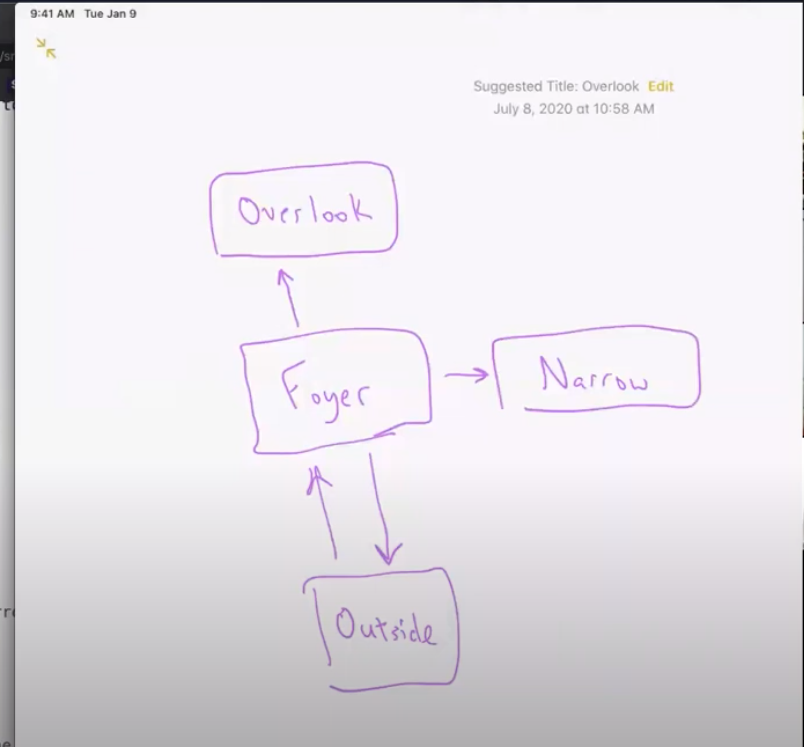 9:41 AM Tue Jan 9
Suggested Title: Overlook Edit
July 8, 2020 at 10:58 AM
Overlook
Foyer
Narrow
Outside